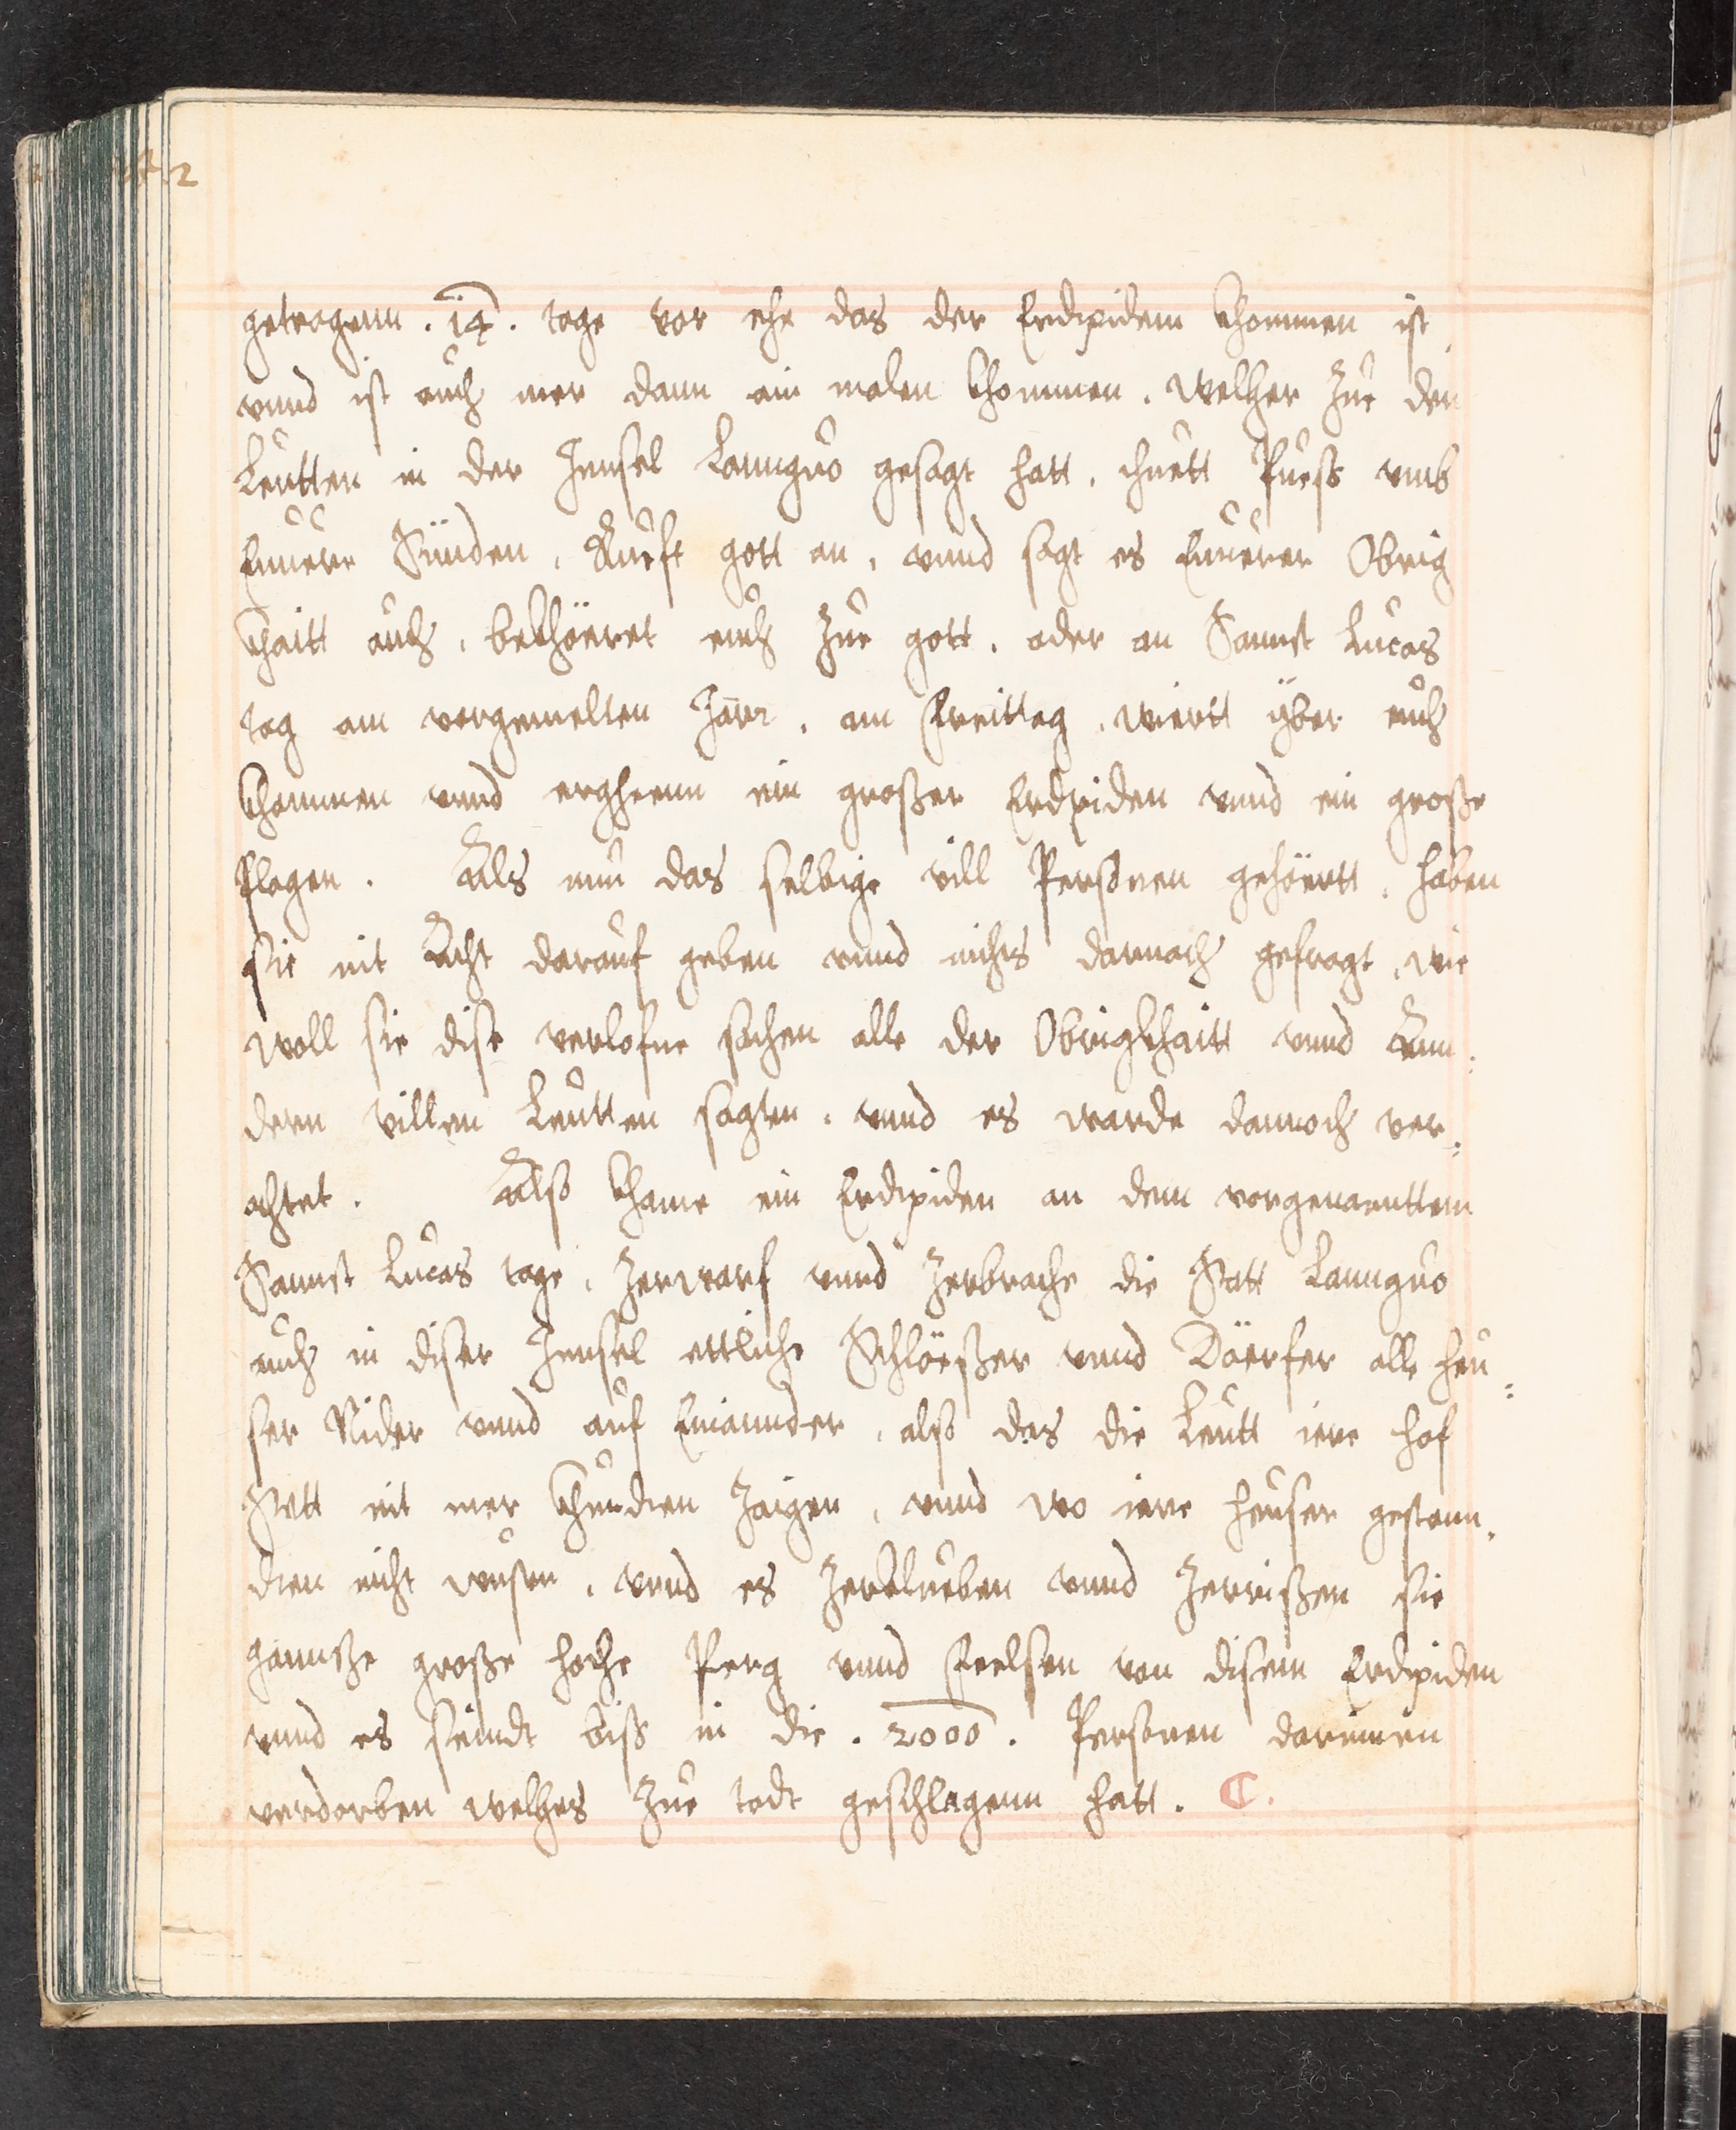 getragenn . 14 . tage vor ehe das der Erdpidem khommen ist
vnnd ist auch mer dann ain malen khommen . welher zue den
Leutten in der Jnnsel Lanngúo gesagt hatt . thuett Puess vmb
Eúúere Sünden , Rúeft gott an , vnnd sagt es Eúúerer Obrig
khaitt aúch , bekhöeret eúch zúe gott . oder an Sannct Lúcas
tag am vorgemelten Jarr , am Freittag , wiertt yber eúch
khommen vnnd erghenn ein großer Erdpiden vnnd ein große
Plagen . Als nún das selbige vill Personen gehöertt , haben
sie nit Acht darauf geben vnnd nichts darnach gefragt , wie
woll sie dise verlofne sachen alle der Obrigkhaitt vnnd Ann:
dern villen Leútten sagten , vnnd es warde dannoch ver:
achtet . Alß khame ein Erdpiden an dem vorgenanttem
Sannct Lúcas tage , Zerwarf vnnd Zerbrache die Statt Lanngúo
aúch in diser Jnnsel ettliche Schlößer vnnd Döerfer alle heú:
ser Nider vnnd aúf Einannder , alß das die Leútt iere hof
Stett nit mer khundten zaigen , vnnd wo iere heúser gestann:
dten nicht wústen , vnnd es Zerklúeben vnnd Zerrißen sie
ganncze große hoche Perg vnnd Feelsen von disem Erdpiden
vnnd es seindt biss in die . 2000 . Personen darinnen
verdorben welhes Zúe todt geschlagenn hatt .